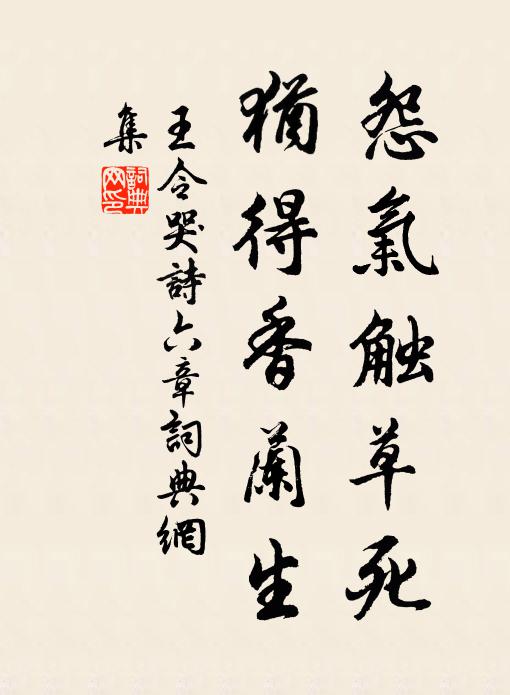 怨氣触草死
猶得香蘭生
王令哭詩六章詞典網
集
詞典网印